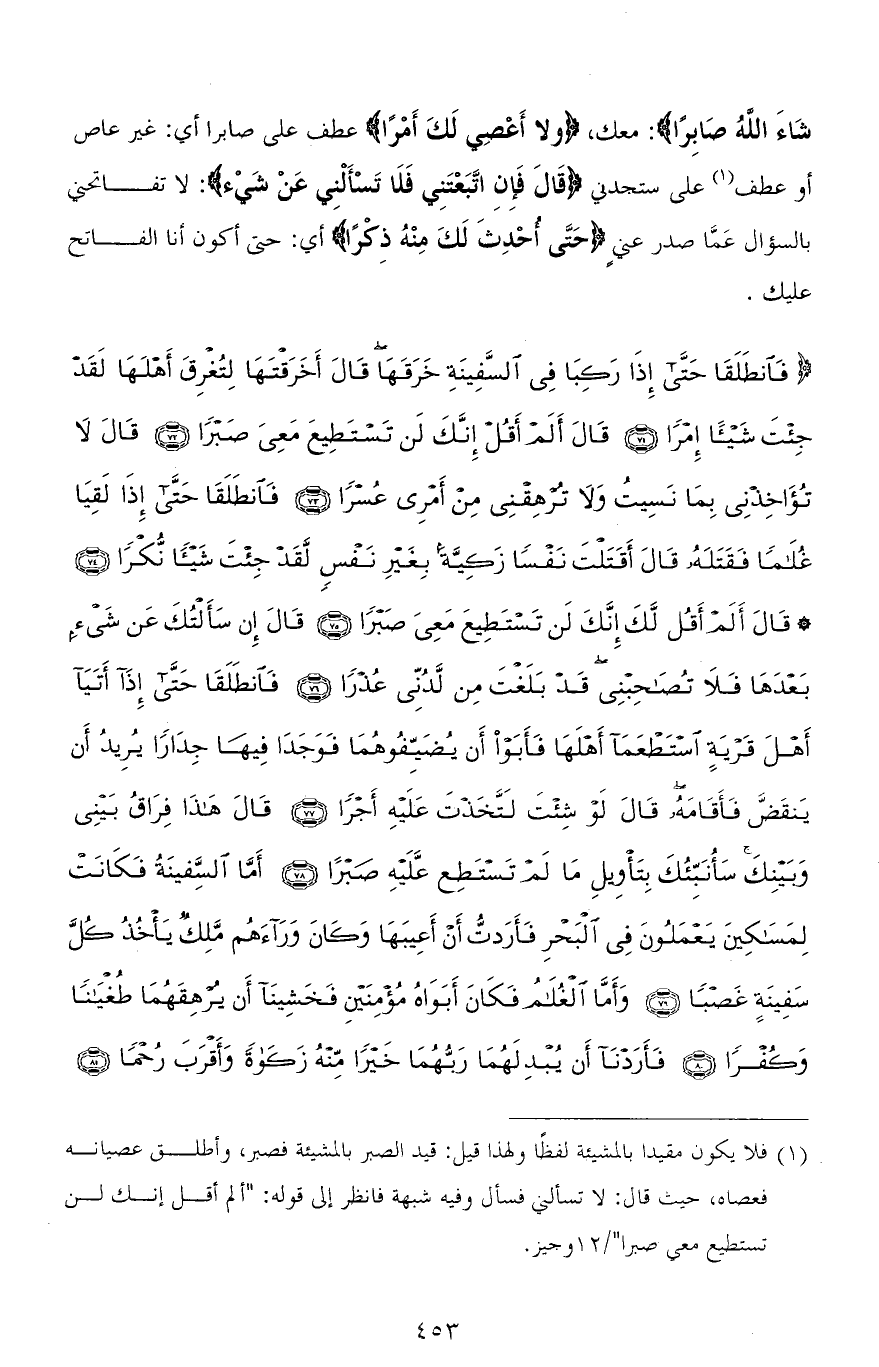 شَاءَ اللَّهُ صَابِرًا﴾: معك، ﴿ولا أَعْصِي لَكَ أَمْرًا﴾ عطف على صابرا أي: غير عاص
أو عطف(١) على ستجدني ﴿قَالَ فَإِنِ اتَّبَعْتَنِي فَلَا تَسْأَلْنِي عَنْ شَيْءٍ﴾: لا تفـــــاتحني
بالسؤال عَمَّا صدر عني ﴿حَتَّى أُحْدِثَ لَكَ مِنْهُ ذِكْرًا﴾ أي: حتى أكون أنا الفـــــاتح
عليك .
﴿ فَٱنطَلَقَا حَتَّىٰٓ إِذَا رَكِبَا فِى ٱلسَّفِينَةِ خَرَقَهَا ۖ قَالَ أَخَرَقْتَهَا لِتُغْرِقَ أَهْلَهَا لَقَدْ
جِئْتَ شَيْـًٔا إِمْرًا ﴿٧١﴾ قَالَ أَلَمْ أَقُلْ إِنَّكَ لَن تَسْتَطِيعَ مَعِىَ صَبْرًا ﴿٧٢﴾ قَالَ لَا
تُؤَاخِذْنِى بِمَا نَسِيتُ وَلَا تُرْهِقْنِى مِنْ أَمْرِى عُسْرًا ﴿٧٣﴾ فَٱنطَلَقَا حَتَّىٰٓ إِذَا لَقِيَا
غُلَـٰمًا فَقَتَلَهُۥ قَالَ أَقَتَلْتَ نَفْسًا زَكِيَّةًۢ بِغَيْرِ نَفْسٍ لَّقَدْ جِئْتَ شَيْـًٔا نُّكْرًا ﴿٧٤﴾
* قَالَ أَلَمْ أَقُل لَّكَ إِنَّكَ لَن تَسْتَطِيعَ مَعِىَ صَبْرًا ﴿٧٥﴾ قَالَ إِن سَأَلْتُكَ عَن شَىْءٍۭ
بَعْدَهَا فَلَا تُصَـٰحِبْنِى ۖ قَدْ بَلَغْتَ مِن لَّدُنِّى عُذْرًا ﴿٧٦﴾ فَٱنطَلَقَا حَتَّىٰٓ إِذَآ أَتَيَآ
أَهْلَ قَرْيَةٍ ٱسْتَطْعَمَآ أَهْلَهَا فَأَبَوْا۟ أَن يُضَيِّفُوهُمَا فَوَجَدَا فِيهَا جِدَارًا يُرِيدُ أَن
يَنقَضَّ فَأَقَامَهُۥ ۖ قَالَ لَوْ شِئْتَ لَتَّخَذْتَ عَلَيْهِ أَجْرًا ﴿٧٧﴾ قَالَ هَـٰذَا فِرَاقُ بَيْنِى
وَبَيْنِكَ ۚ سَأُنَبِّئُكَ بِتَأْوِيلِ مَا لَمْ تَسْتَطِع عَّلَيْهِ صَبْرًا ﴿٧٨﴾ أَمَّا ٱلسَّفِينَةُ فَكَانَتْ
لِمَسَـٰكِينَ يَعْمَلُونَ فِى ٱلْبَحْرِ فَأَرَدتُّ أَنْ أَعِيبَهَا وَكَانَ وَرَآءَهُم مَّلِكٌ يَأْخُذُ كُلَّ
سَفِينَةٍ غَصْبًا ﴿٧٩﴾ وَأَمَّا ٱلْغُلَـٰمُ فَكَانَ أَبَوَاهُ مُؤْمِنَيْنِ فَخَشِينَآ أَن يُرْهِقَهُمَا طُغْيَـٰنًا
وَكُفْرًا ﴿٨٠﴾ فَأَرَدْنَآ أَن يُبْدِلَهُمَا رَبُّهُمَا خَيْرًا مِّنْهُ زَكَوٰةً وَأَقْرَبَ رُحْمًا ﴿٨١﴾
(١) فلا يكون مقيدا بالمشيئة لفظًا ولهذا قيل: قيد الصبر بالمشيئة فصبر، وأطلـــق عصيانـــه
فعصاه، حيث قال: لا تسألني فسأل وفيه شبهة فانظر إلى قوله: "ألم أقـــل إنـــك لـــن
تستطيع معي صبرا"/١٢وجيز.
٤٥٣